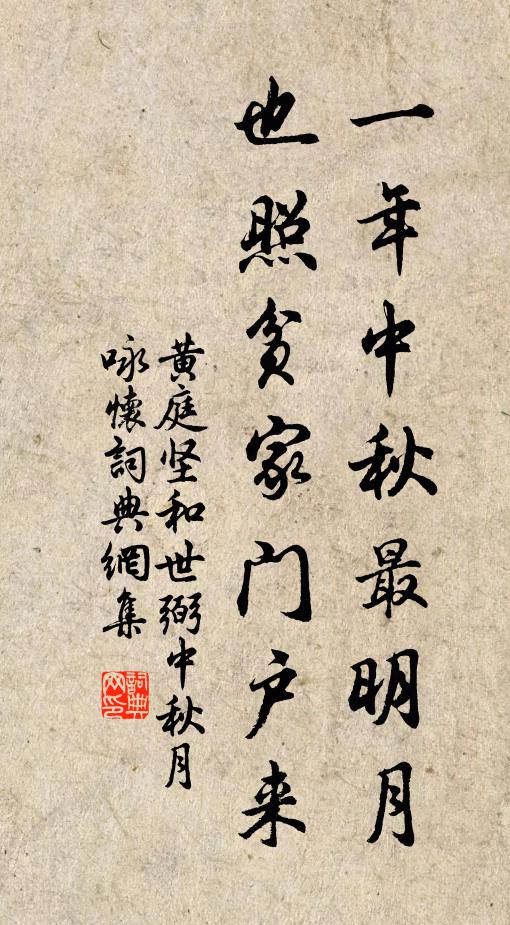 一年中秋最明月
也照贫家门户来
黄庭坚和世弼中秋月
咏怀詞典網集
詞典
网印